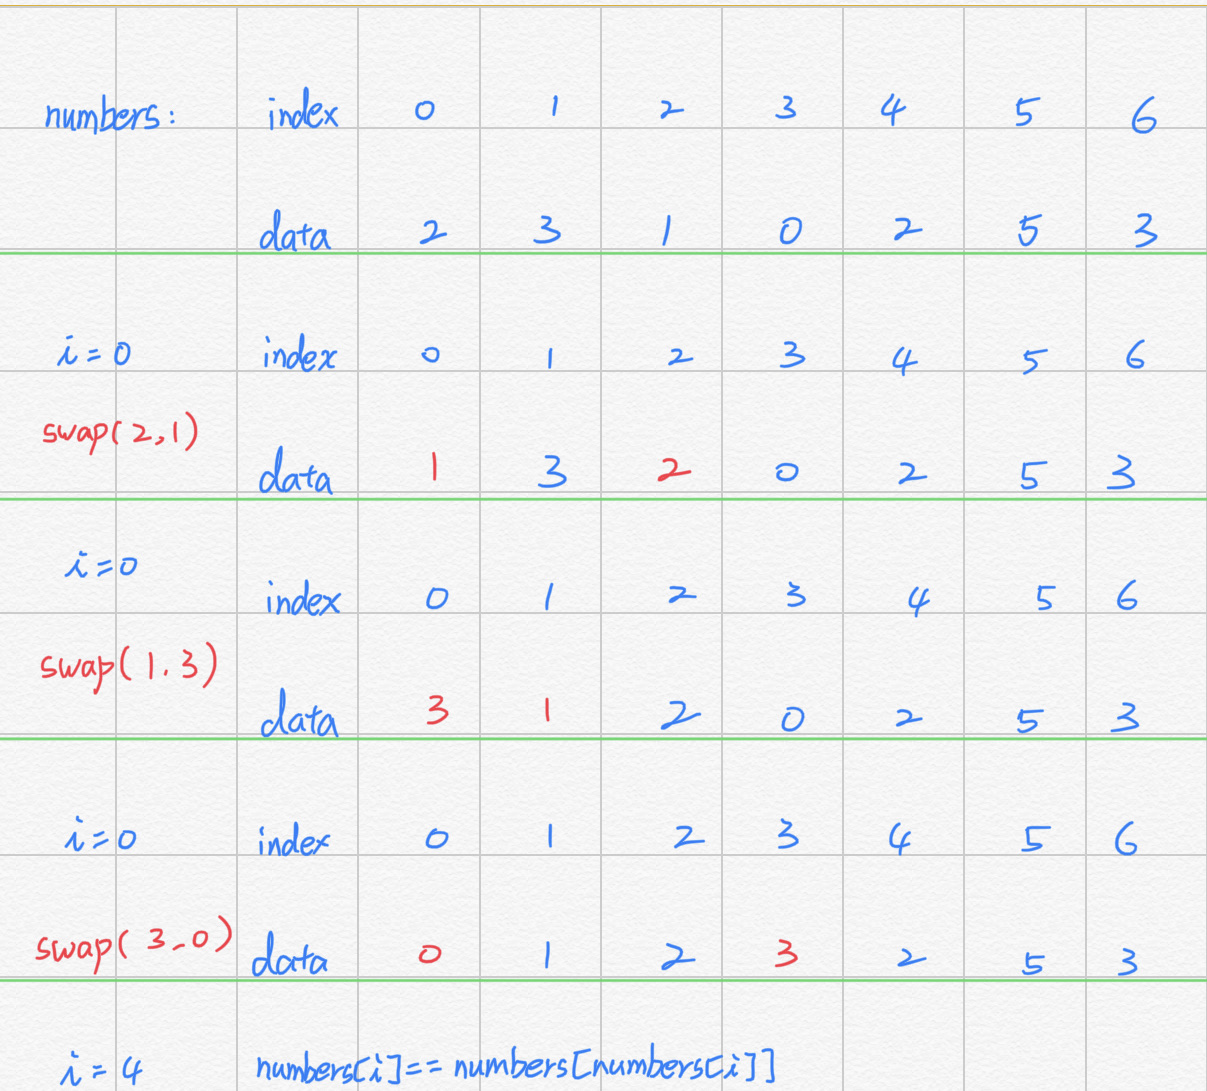 numbers: index 0 1 2 3 4 5 6
data 2 3 1 0 2 5 3
i=0 index 0 1 2 3 4 5 6
swap(2,1)
data 1 3 2 0 2 5 3
i=0
index 0 1 2 3 4 5 6
swap(1.3)
data 3 1 2 0 2 5 3
i=0 index 0 1 2 3 4 5 6
swap(3,0) data 0 1 2 3 2 5 3
i=4 numbers[i]==numbers[numbers[i]]